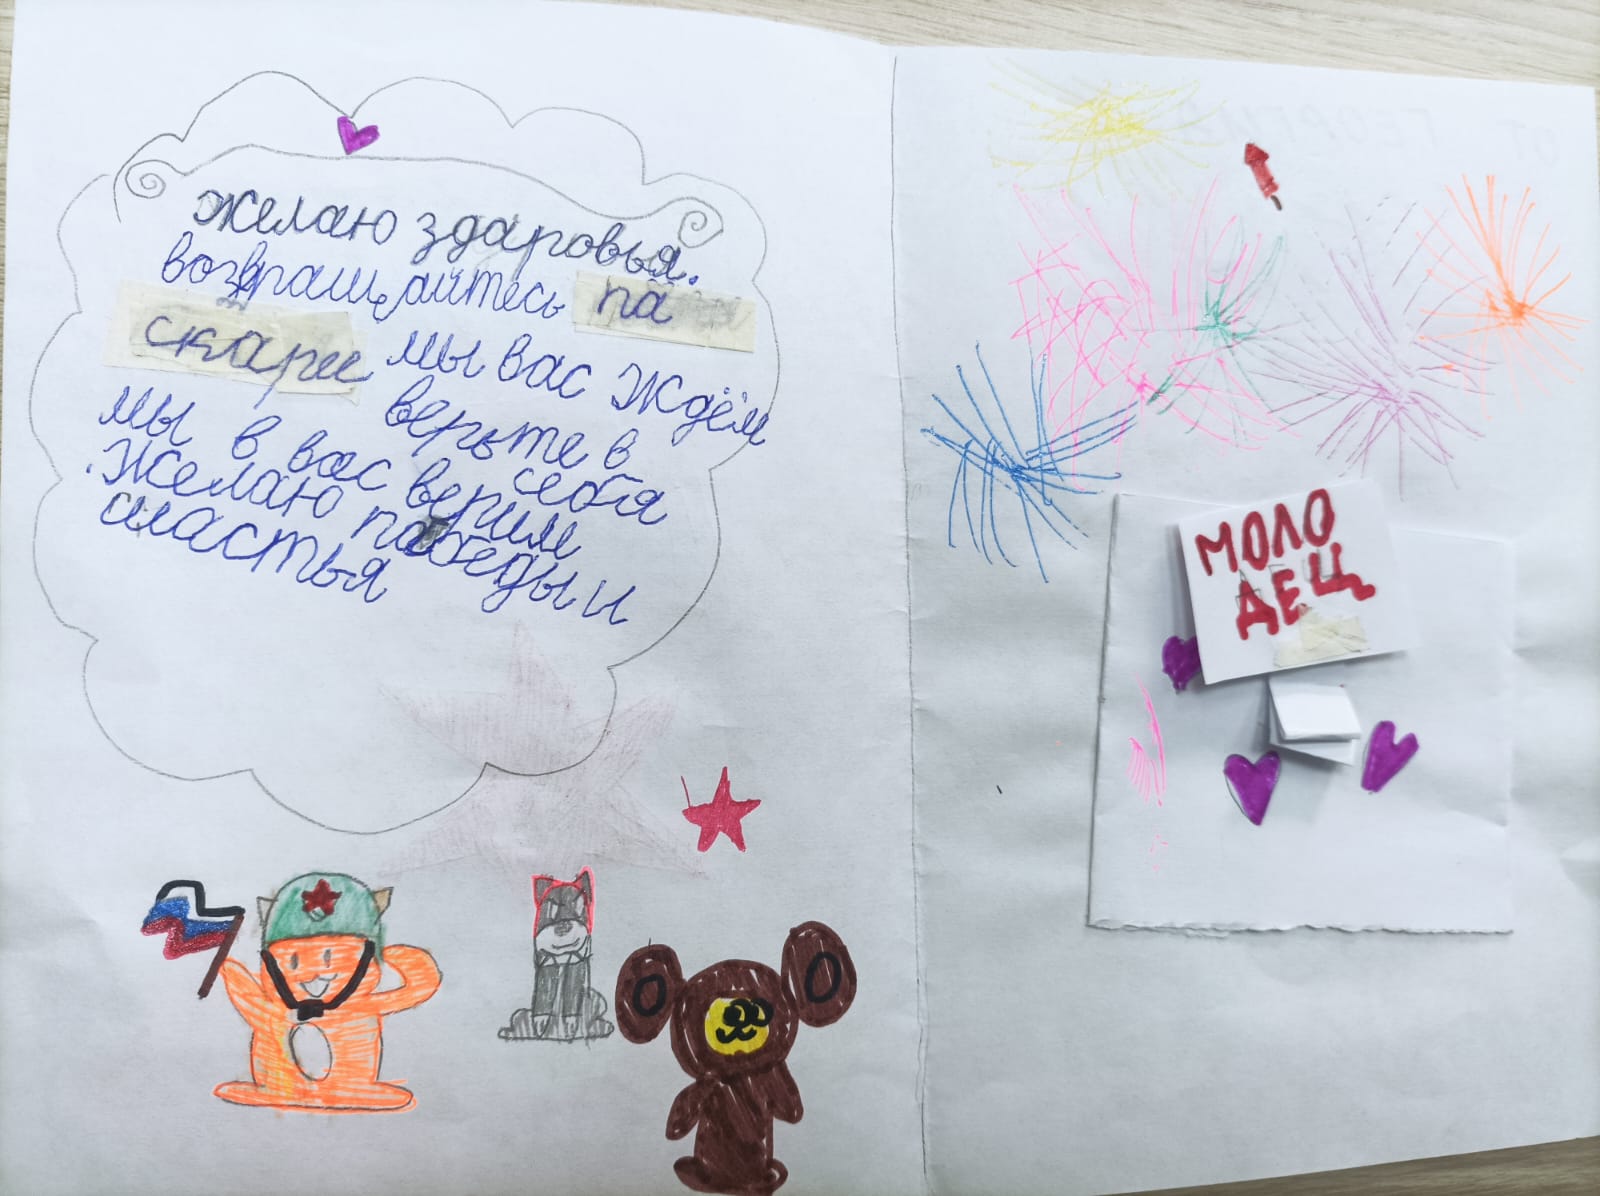 желаю здаровья.
возвращайтесь па
скарее мы вас Ждём
верьте в
себя
мы в вас верим
. Желаю пабеды и
счастья
МОЛО
ДЕЦ
ОТ ГЕОРГИЯ